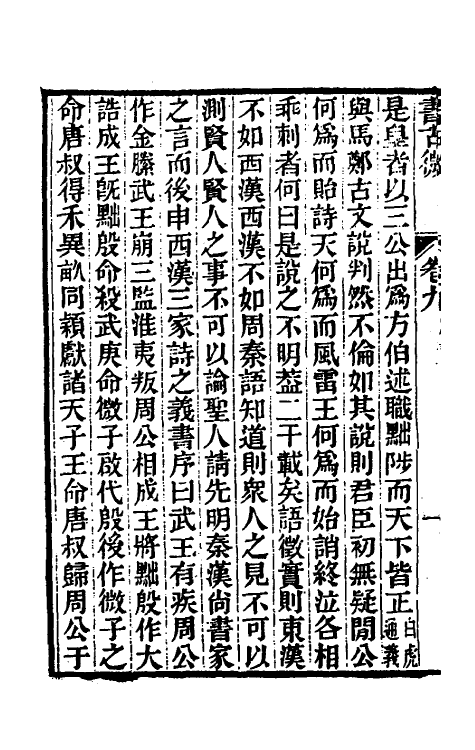 書古微 卷九
是皇者以三公出爲方伯述職黜陟而天下皆正白虎通義
與馬鄭古文說判然不倫如其說則君臣初無疑閒公
何爲而貽詩天何爲而風雷王何爲而始誚終泣各相
乖刺者何曰是說之不明葢二千載矣語徵實則東漢
不如西漢西漢不如周秦語知道則衆人之見不可以
測賢人賢人之事不可以論聖人請先明秦漢尚書家
之言而後申西漢三家詩之義書序曰武王有疾周公
作金縢武王崩三監淮夷叛周公相成王將黜殷作大
誥成王旣黜殷命殺武庚命微子啟代殷後作微子之
命唐叔得禾異畝同穎獻諸天子王命唐叔歸周公于